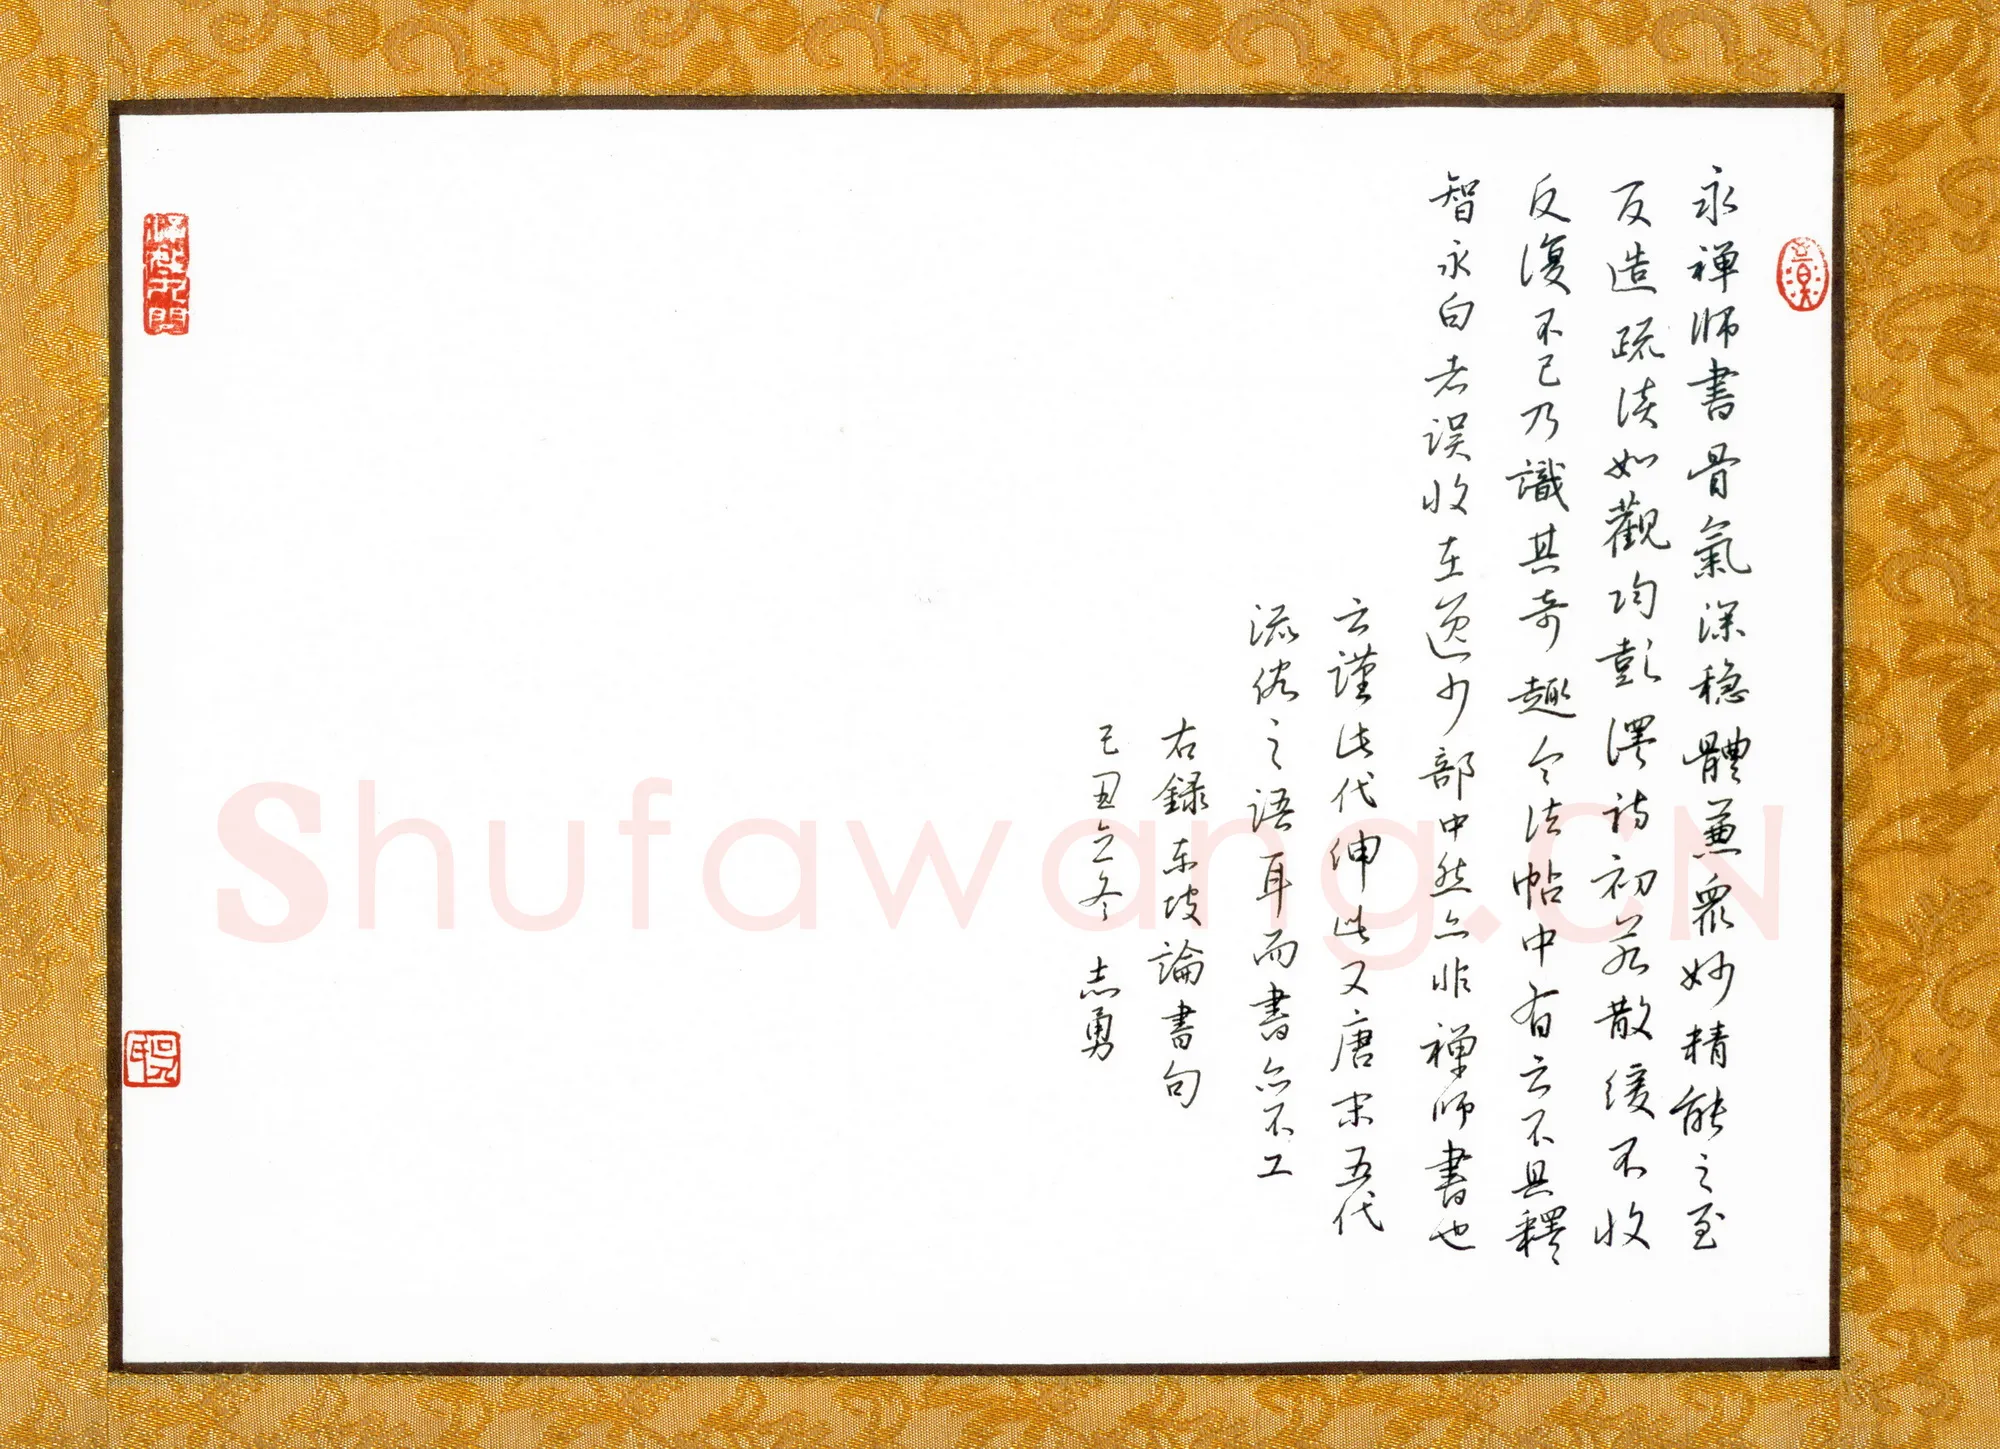 永禅师書骨氣深稳體兼眾妙精能之至
反造疏淡如觀陶彭澤詩初若散缓不收
反復不已乃識其奇趣今法帖中有云不具釋
智永白者误收在逸少部中然亦非禅师書也
云謹此代伸此又唐末五代
流俗之語耳而書亦不工
右録东坡論書句
己丑立冬 志勇
Shufawang.CN